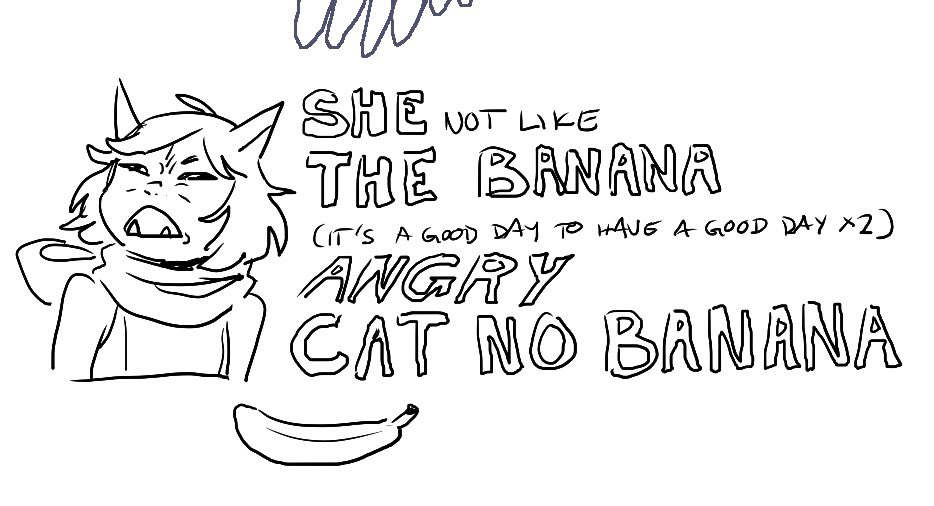 SHE NOT LIKE
THE BANANA
(IT'S A GOOD DAY TO HAVE A GOOD DAY x2)
ANGRY
CAT NO BANANA